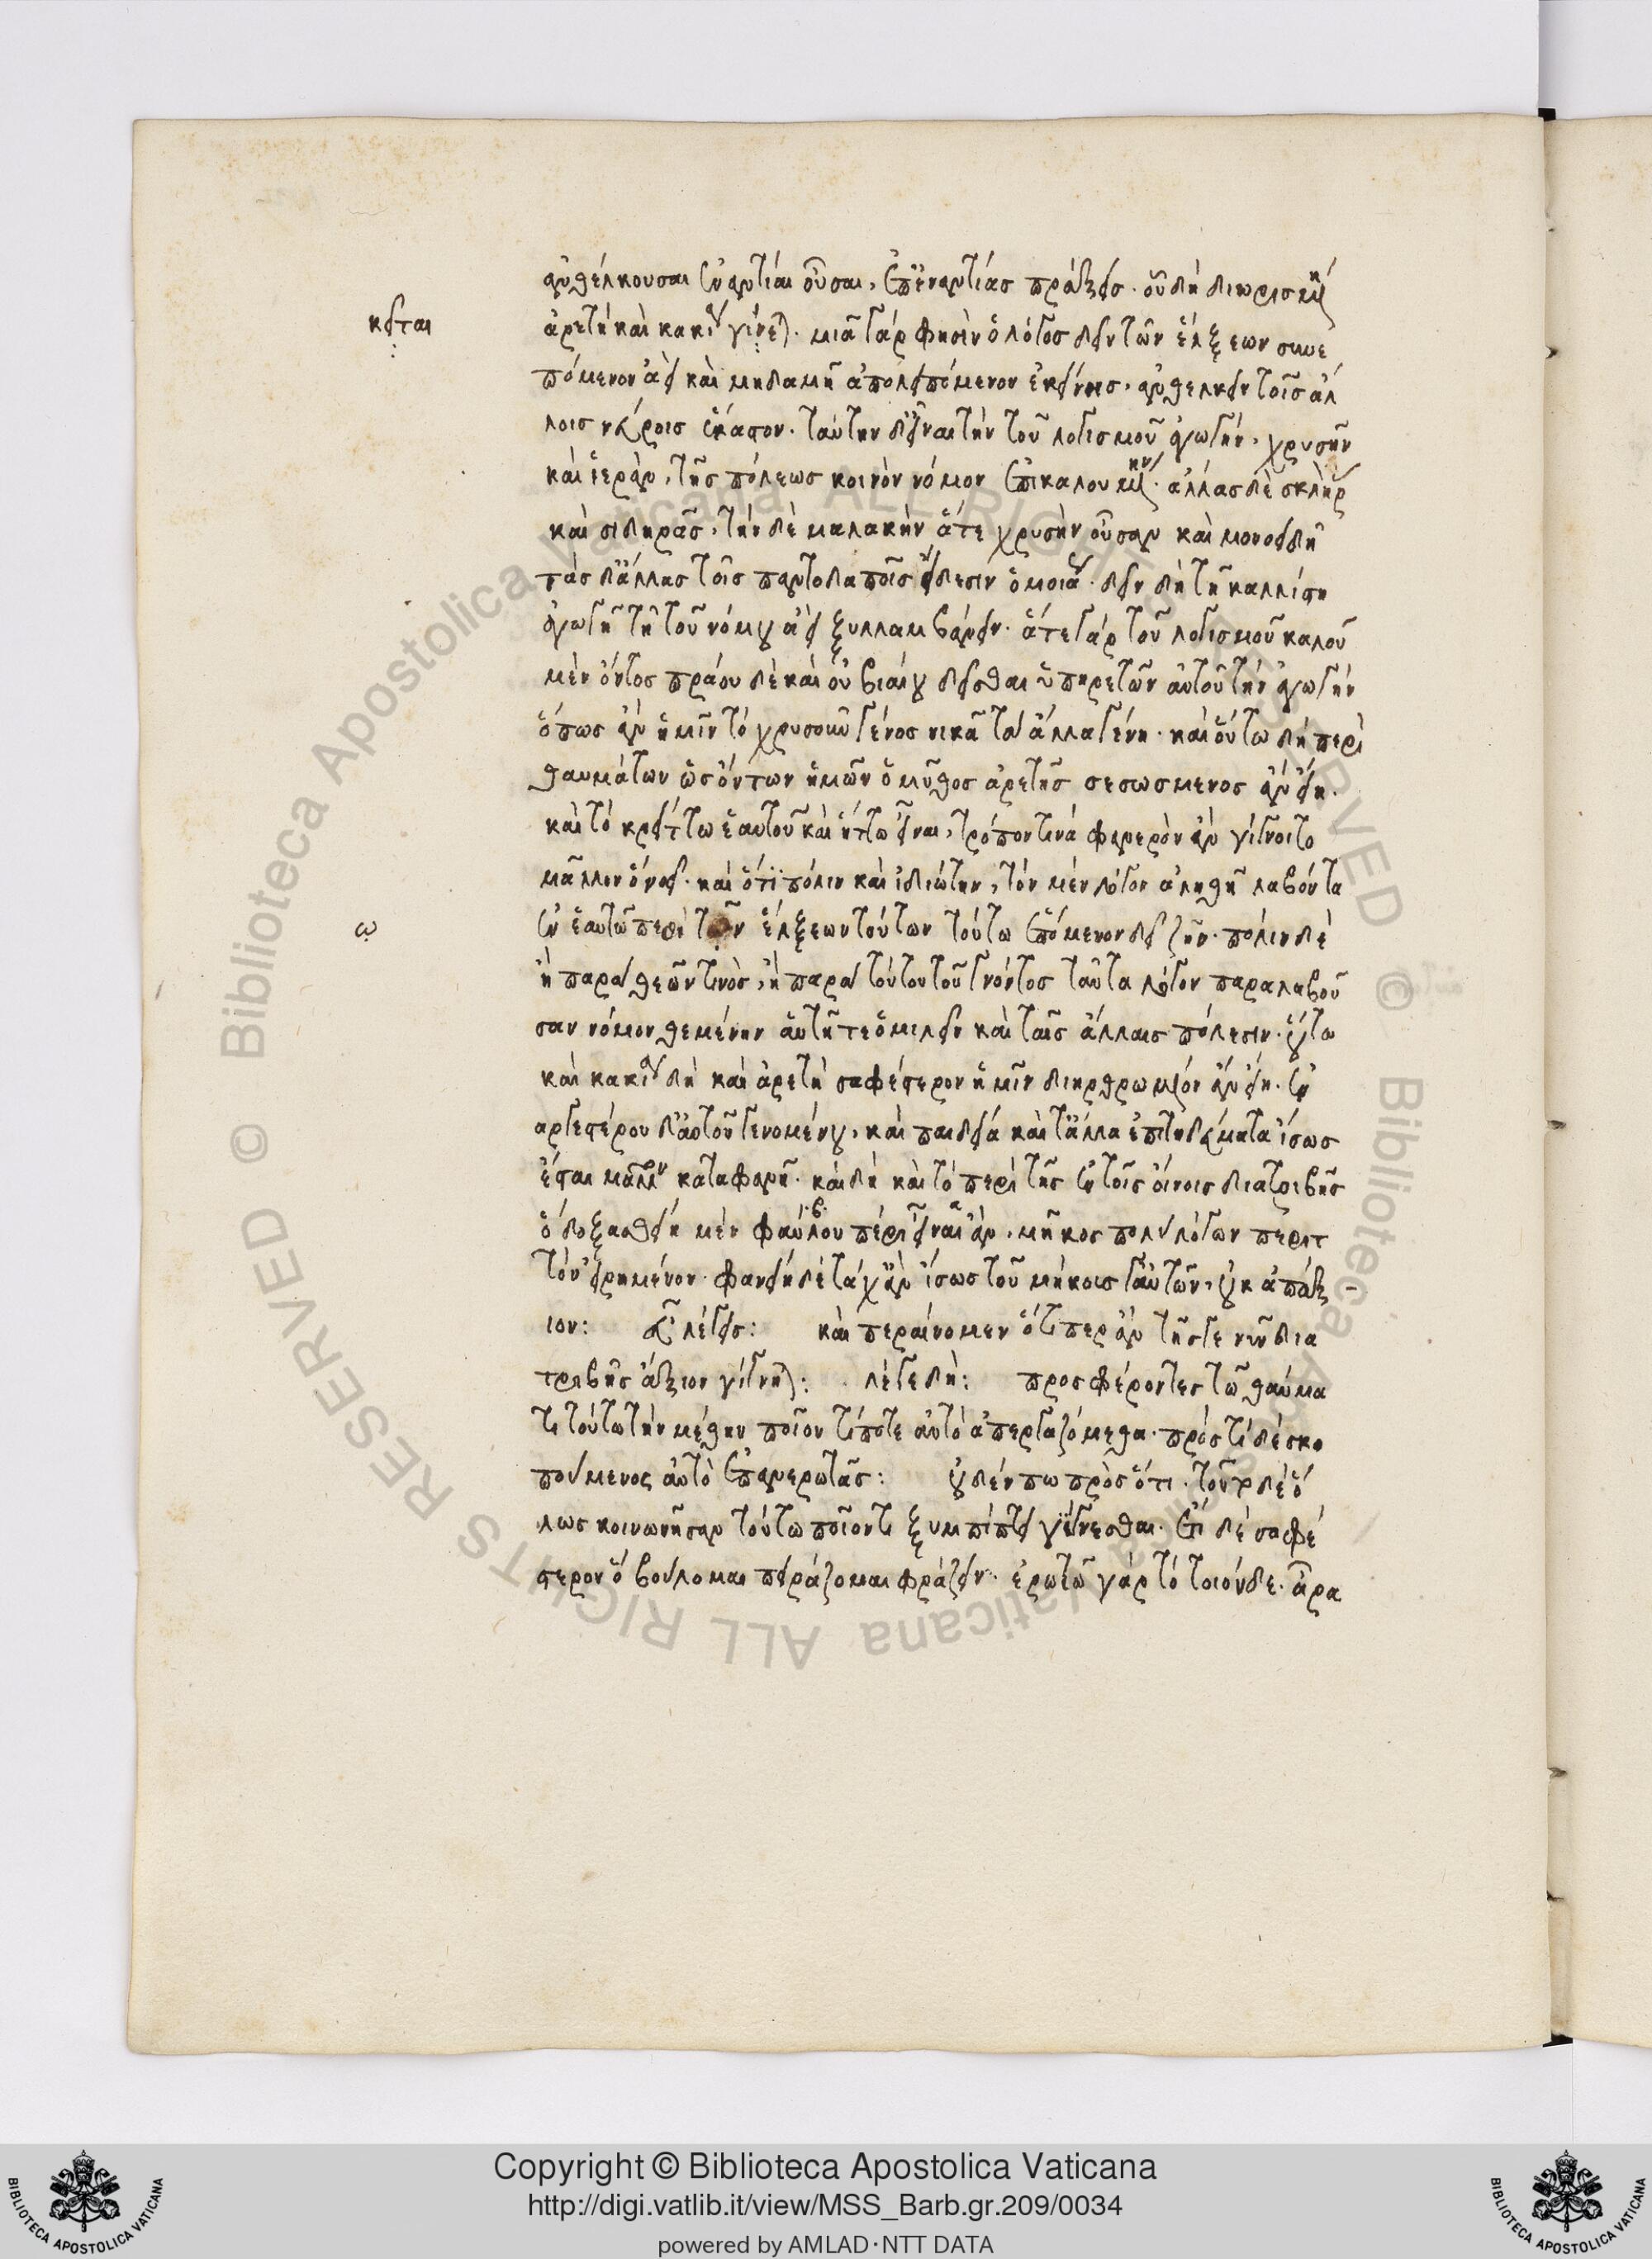 ἀνθέλκουσαι ἐναντίαι οὖσαι, ἐπ' ἐναντίας πράξεις. οὗ δὴ διωρισμένη
κεῖται
ἀρετὴ καὶ κακία γίνεται. μιᾶ γάρ φησὶν ὁ λόγος δεῖν τῶν ἕλξεων συνε
πόμενον ἀεὶ καὶ μηδαμῆ ἀπολειπόμενον ἐκείνης, ἀνθέλκειν τοῖς ἄλ
λοις νεύροις ἕκαστον. ταύτην δ' εἶναι τὴν τοῦ λογισμοῦ ἀγωγήν, χρυσῆν
καὶ ἱεράν, τῆς πόλεως κοινὸν νόμον ἐπικαλουμένην. ἄλλας δὲ σκληρὰς
καὶ σιδηρᾶς, τὴν δὲ μαλακὴν ἅτε χρυσῆν οὖσαν καὶ μονοειδῆ
τὰς δ' ἄλλας τοῖς παντοδαποῖς εἴδεσιν ὁμοίας. δεῖν δὴ τῆ καλλίστη
ἀγωγῆ τῆ τοῦ νόμου ἀεὶ ξυλλαμβάνειν. ἅτε γὰρ τοῦ λογισμοῦ καλοῦ
μὲν ὄντος πράου δὲ καὶ οὐ βιαίου δεῖσθαι ὑπηρετῶν αὐτοῦ τὴν ἀγωγήν
ὅπως ἂν ἡμῖν τὸ χρυσοῦν γένος νικᾶ τὰ ἄλλα γένη. καὶ οὕτω δὴ περὶ
θαυμάτων ὡς ὄντων ἡμῶν ὁ μῦθος ἀρετῆς σεσωσμενος ἂν εἴη.
καὶ τὸ κρείττω ἑαυτοῦ καὶ ἥττω εἶναι, τρόπον τινὰ φανερὸν ἂν γίγνοιτο
μᾶλλον ὃ νοεῖ. καὶ ὅτι πόλιν καὶ ἰδιώτην, τὸν μὲν λόγον ἀληθῆ λαβόντα
ω
ἐν ἑαυτῶ περὶ τῶν ἕλξεων τούτων τούτω ἑπόμενον δεῖ ζῆν. πόλιν δὲ
ἢ παρὰ θεῶν τινὸς, ἢ παρὰ τούτου τοῦ γνόντος ταῦτα λόγον παραλαβοῦ
σαν νόμον θεμένην αὑτῆ τε ὁμιλεῖν καὶ ταῖς ἄλλαις πόλεσιν. οὕτω
καὶ κακία δὴ καὶ ἀρετὴ σαφέστερον ἡμῖν διηρθρωμένον ἂν εἴη. ἐν
αργεστέρου δ' αὐτοῦ γενομένου, καὶ παιδεία καὶ τἄλλα ἐπιτηδεύματα ἴσως
ἔσται μᾶλλον καταφανῆ. καὶ δὴ καὶ τὸ περὶ τῆς ἐν τοῖς οἴνοις διατριβῆς
ὃ δοξασθείη μὲν φαύλου πέρι εἶναι ἂν, μῆκος πολὺ λόγων περιτ
τὸν εἰρημένον. φανείη δὲ τάχ' ἂν ἴσως τοῦ μήκους γ' αὐτῶν, οὐκ ἀπάξ
ιον: εὖ λέγεις: καὶ περαίνομεν ὅτιπερ ἂν τῆς γε νῦν δια
τριβῆς ἄξιον γίγνηται: λέγε δὴ: προσφέροντες τῶ θαύμα
τι τούτω τὴν μέθην ποῖον τί ποτε αὐτὸ ἀπεργαζόμεθα. πρὸς τί δὲ σκο
πούμενος αὐτὸ ἐπανερωτᾶς: οὐδέν πω πρὸς ὅτι. τοῦτο δὲ ὅ
λως κοινωνῆσαν τούτω ποῖόν τι ξυμπίπτει γίγνεσθαι. ἔτι δὲ σαφέ
στερον ὃ βούλομαι πειράσομαι φράζειν. ἐρωτῶ γὰρ τὸ τοιόνδε. ἆρα
Copyright © Biblioteca Apostolica Vaticana
http://digi.vatlib.it/view/MSS_Barb.gr.209/0034
powered by AMLAD·NTT DATA
BIBLIOTECA APOSTOLICA VATICANA
BIBLIOTECA APOSTOLICA VATICANA
© Biblioteca Apostolica Vaticana ALL RIGHTS RESERVED © Biblioteca Apostolica Vaticana ALL RIGHTS RESERVED